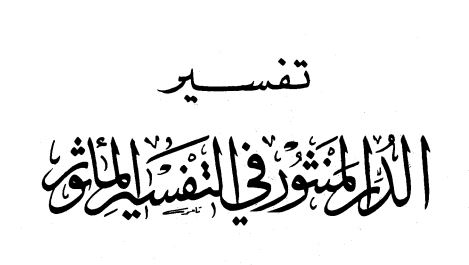 تفسير
الدر المنثور في التفسير المأثور